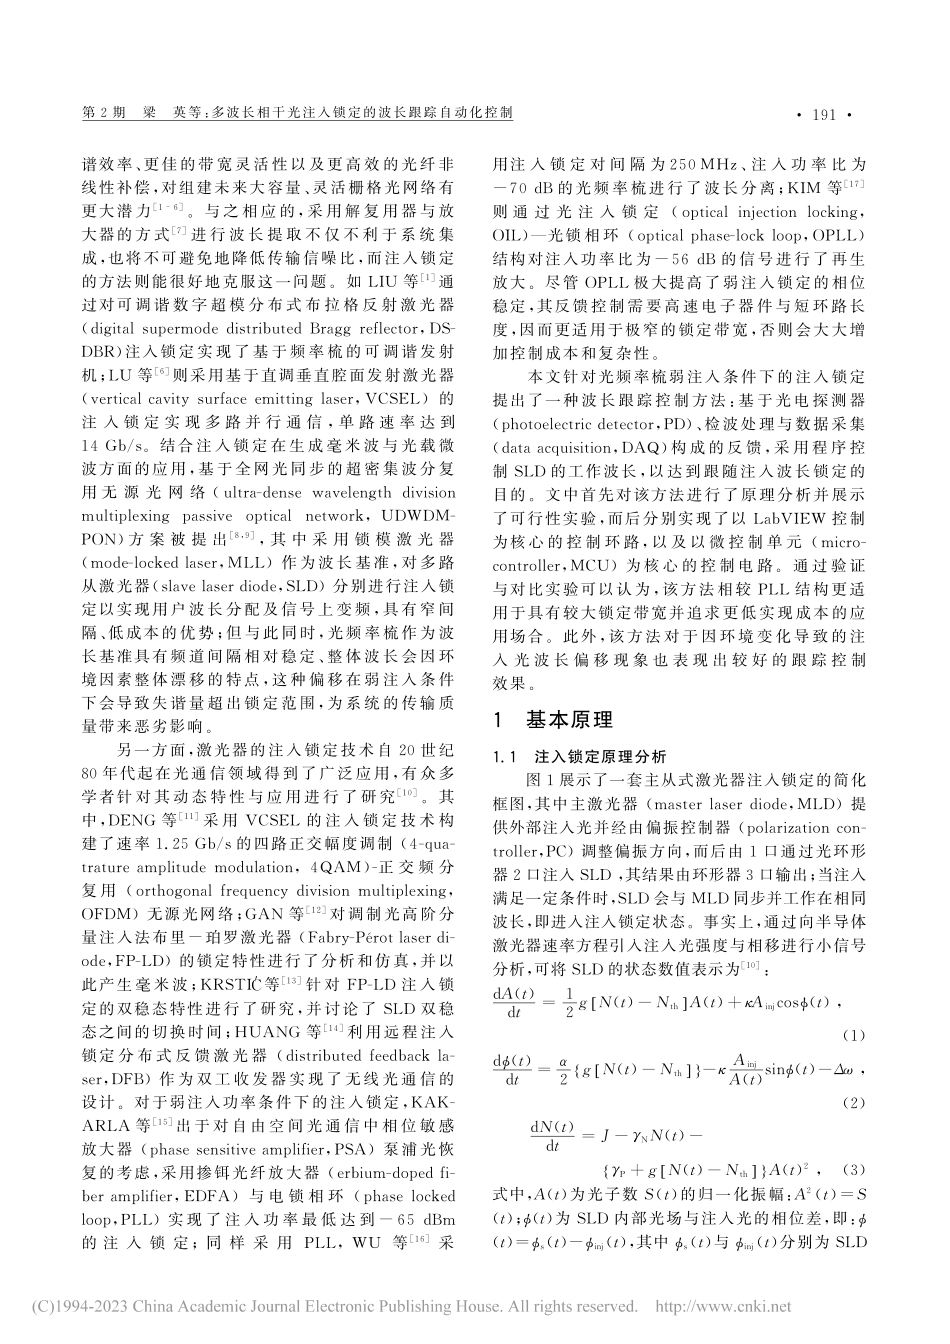 第 2 期 梁 英等:多波长相干光注入锁定的波长跟踪自动化控制
• 191 •
谱效率、更佳的带宽灵活性以及更高效的光纤非
线性补偿,对组建未来大容量、灵活栅格光网络有
更大潜力[1-6]。与之相应的,采用解复用器与放
大器的方式[7]进行波长提取不仅不利于系统集
成,也将不可避免地降低传输信噪比,而注入锁定
的方法则能很好地克服这一问题。如 LIU 等[1]通
过对可调谐数字超模分布式布拉格反射激光器
(digital supermode distributed Bragg reflector,DS-
DBR)注入锁定实现了基于频率梳的可调谐发射
机;LU 等[6]则采用基于直调垂直腔面发射激光器
(vertical cavity surface emitting laser,VCSEL) 的
注入锁定实现多路并行通信,单路速率达到
14 Gb/s。结合注入锁定在生成毫米波与光载微
波方面的应用,基于全网光同步的超密集波分复
用无源光网络(ultra-dense wavelength division
multiplexing passive optical network, UDWDM-
PON)方案被提出[8,9],其中采用锁模激光器
(mode-locked laser,MLL) 作为波长基准,对多路
从激光器(slave laser diode,SLD) 分别进行注入锁
定以实现用户波长分配及信号上变频,具有窄间
隔、低成本的优势;但与此同时,光频率梳作为波
长基准具有频道间隔相对稳定、整体波长会因环
境因素整体漂移的特点,这种偏移在弱注入条件
下会导致失谐量超出锁定范围,为系统的传输质
量带来恶劣影响。
另一方面,激光器的注入锁定技术自 20 世纪
80 年代起在光通信领域得到了广泛应用,有众多
学者针对其动态特性与应用进行了研究[10]。其
中,DENG 等[11]采用 VCSEL 的注入锁定技术构
建了速率 1.25 Gb/s 的四路正交幅度调制 (4-qua-
trature amplitude modulation, 4QAM)-正交频分
复用 (orthogonal frequency division multiplexing,
OFDM) 无源光网络;GAN 等[12]对调制光高阶分
量注入法布里-珀罗激光器 (Fabry-Pérot laser di-
ode,FP-LD) 的锁定特性进行了分析和仿真,并以
此产生毫米波;KRSTIĆ等[13]针对 FP-LD 注入锁
定的双稳态特性进行了研究,并讨论了 SLD 双稳
态之间的切换时间;HUANG 等[14]利用远程注入
锁定分布式反馈激光器 (distributed feedback la-
ser,DFB) 作为双工收发器实现了无线光通信的
设计。对于弱注入功率条件下的注入锁定,KAK-
ARLA 等[15]出于对自由空间光通信中相位敏感
放大器 (phase sensitive amplifier,PSA) 泵浦光恢
复的考虑,采用掺铒光纤放大器 (erbium-doped fi-
ber amplifier,EDFA) 与电锁相环 (phase locked
loop,PLL) 实现了注入功率最低达到-65 dBm
的注入锁定;同样采用 PLL, WU 等[16]采
用注入锁定对间隔为250 MHz、注入功率比为
-70 dB 的光频率梳进行了波长分离;KIM 等[17]
则通过光注入锁定 (optical injection locking,
OIL)—光锁相环 (optical phase-lock loop,OPLL)
结构对注入功率比为-56 dB 的信号进行了再生
放大。尽管 OPLL 极大提高了弱注入锁定的相位
稳定,其反馈控制需要高速电子器件与短环路长
度,因而更适用于极窄的锁定带宽,否则会大大增
加控制成本和复杂性。
本文针对光频率梳弱注入条件下的注入锁定
提出了一种波长跟踪控制方法:基于光电探测器
(photoelectric detector,PD)、检波处理与数据采集
(data acquisition,DAQ) 构成的反馈,采用程序控
制 SLD 的工作波长,以达到跟随注入波长锁定的
目的。文中首先对该方法进行了原理分析并展示
了可行性实验,而后分别实现了以 LabVIEW 控制
为核心的控制环路,以及以微控制单元 (micro-
controller,MCU) 为核心的控制电路。通过验证
与对比实验可以认为,该方法相较 PLL 结构更适
用于具有较大锁定带宽并追求更低实现成本的应
用场合。此外,该方法对于因环境变化导致的注
入光波长偏移现象也表现出较好的跟踪控制
效果。
1 基本原理
1.1 注入锁定原理分析
图 1 展示了一套主从式激光器注入锁定的简化
框图,其中主激光器 (master laser diode,MLD) 提
供外部注入光并经由偏振控制器 (polarization con-
troller,PC) 调整偏振方向,而后由 1 口通过光环形
器 2 口注入 SLD ,其结果由环形器 3 口输出;当注入
满足一定条件时,SLD 会与 MLD 同步并工作在相同
波长,即进入注入锁定状态。事实上,通过向半导体
激光器速率方程引入注入光强度与相移进行小信号
分析,可将 SLD 的状态数值表示为[10]:
dA(t)/dt = 1/2 g[N(t)-N_th]A(t)+κA_inj cosϕ(t) ,
(1)
dϕ(t)/dt = α/2 {g[N(t)-N_th]}-κ A_inj/A(t) sinϕ(t)-Δω ,
(2)
dN(t)/dt = J-γ_N N(t)-
{γ_P+g[N(t)-N_th]}A(t)² , (3)
式中,A(t)为光子数 S(t)的归一化振幅:A²(t)=S
(t);ϕ(t)为 SLD 内部光场与注入光的相位差,即:ϕ
(t)=ϕ_s(t)-ϕ_inj(t),其中 ϕ_s(t)与 ϕ_inj(t)分别为 SLD
(C)1994-2023 China Academic Journal Electronic Publishing House. All rights reserved. http://www.cnki.net